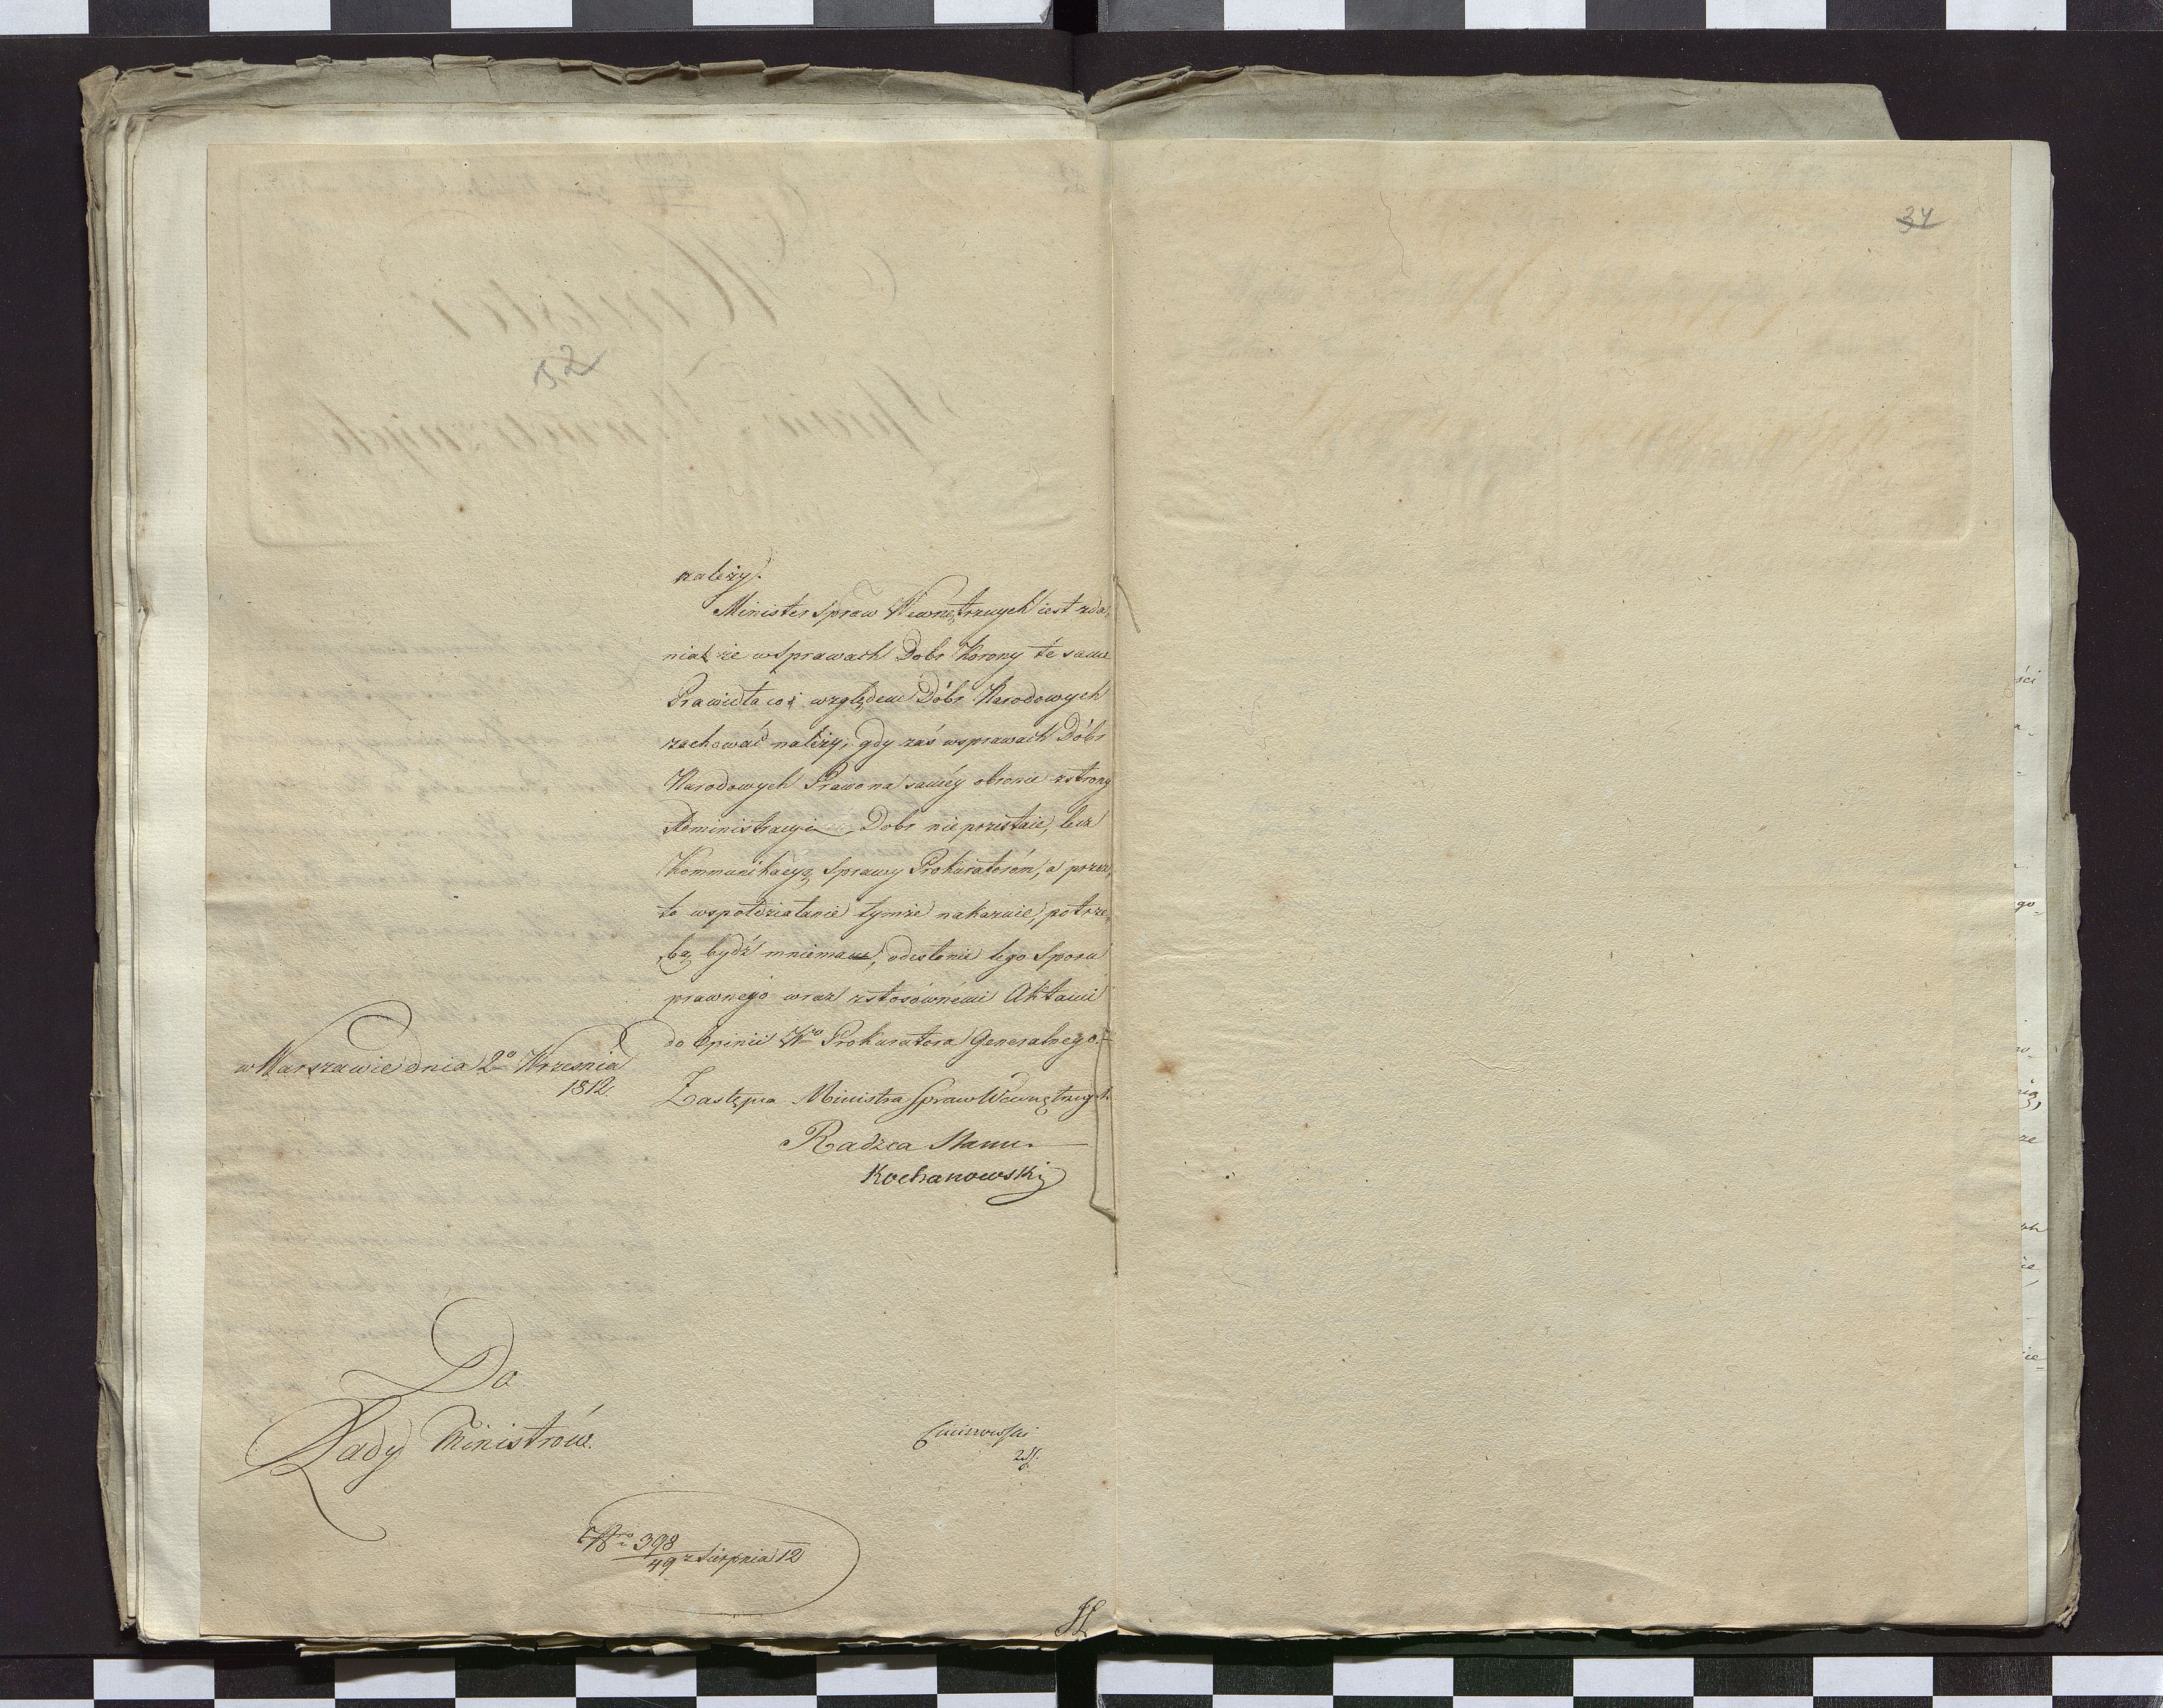 34
52
należy.
Minister Spraw Wewnętrznych iest zda-
nia że w Sprawach Dobr Korony te same
Prawidła co i względem Dóbr Narodowych
zachować należy, gdy zaś w sprawach Dóbr
Narodowych Prawo na saméy obronie z strony
Administracyi Dobr nie przestaie, lecz
Kommunikacyą Sprawy Prokuratorom, a przez
to wspołdziałanie tymże nakazuie, potrze-
bą bydź mniema, odesłanie tego Sporu
prawnego wraz z stosównémi Aktami
do Opinii Wo Prokuratora Generalnego.
w Warszawie dnia 2o Września
1812.
Zastępca Ministra Spraw Wewnętrznych
Radzca Stanu.
Kochanowski
Do
Rady Ministrów.
Nro 398
49 z Sierpnia 12